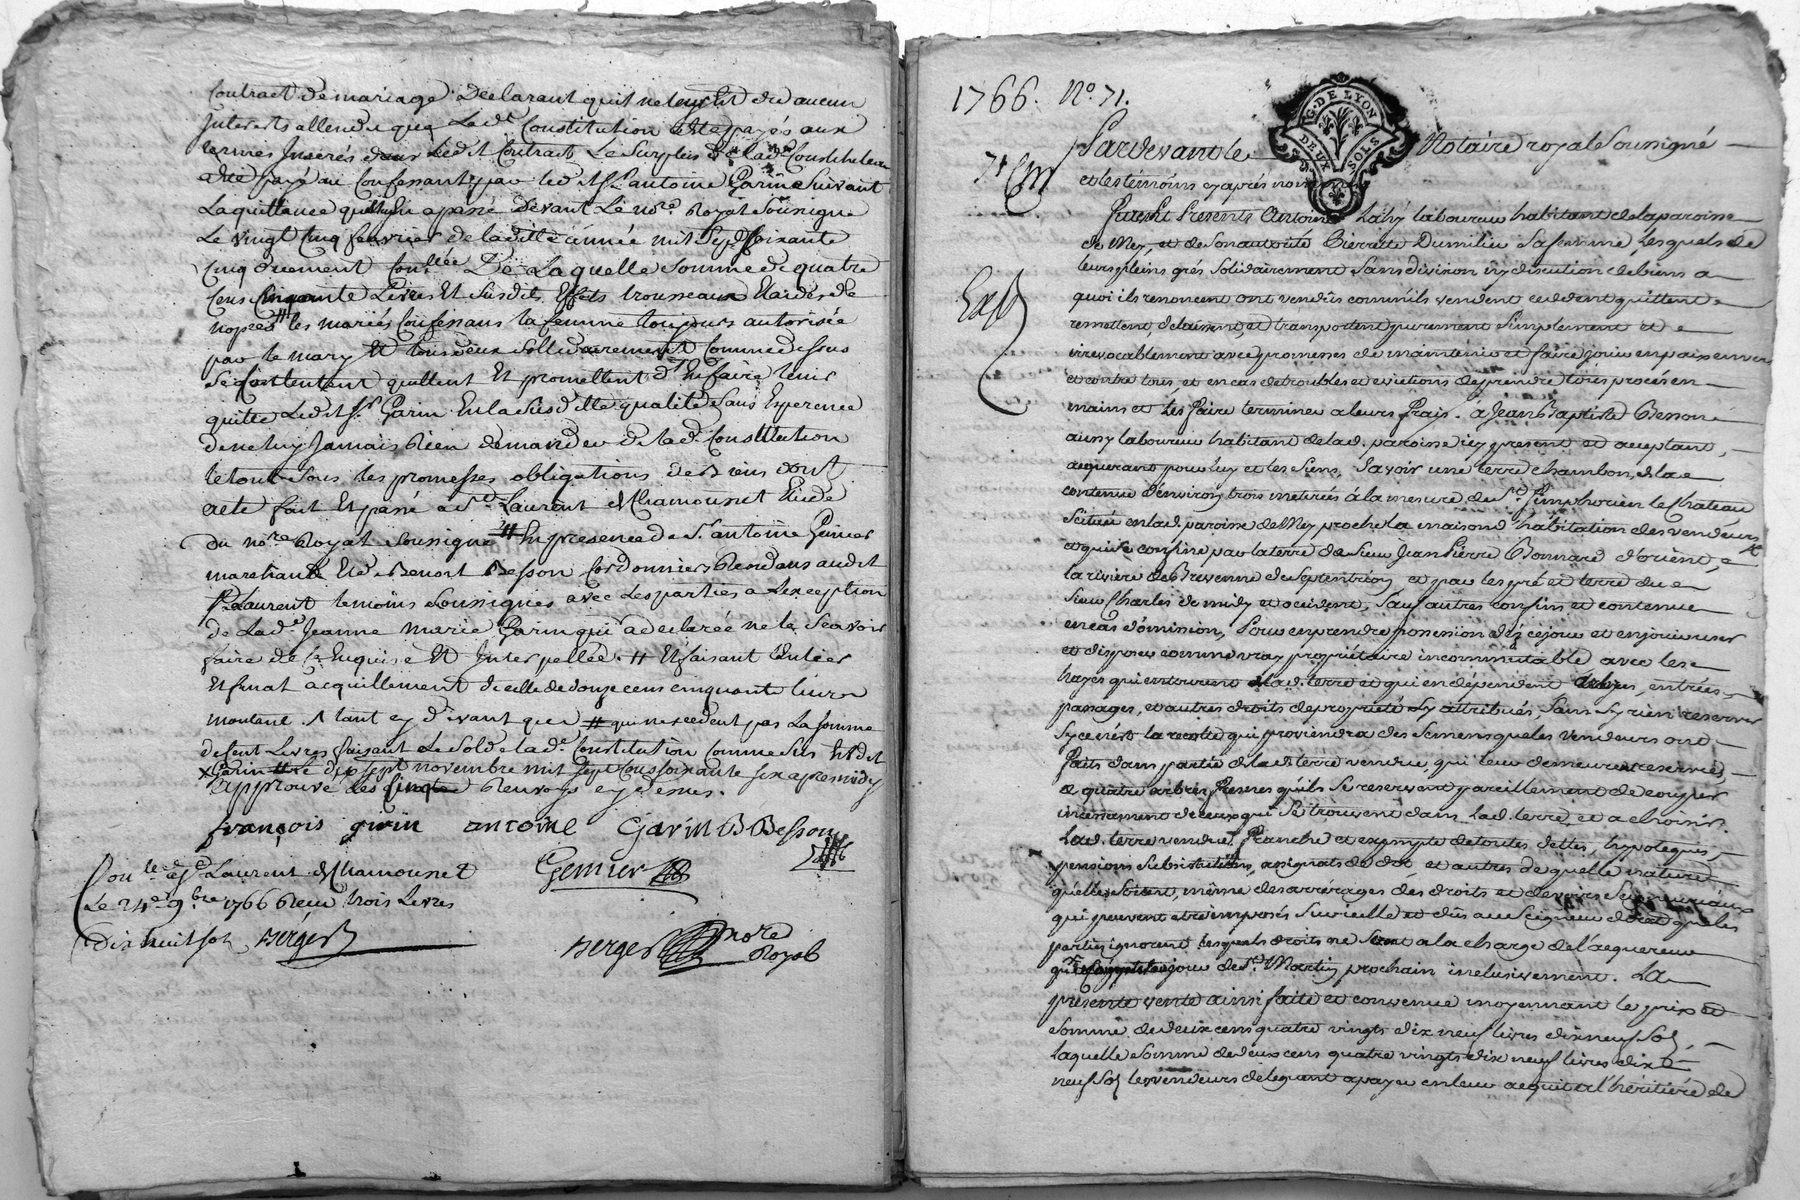 Contract de mariage. Declarant quil ne leur Est du aucun
Interets attendu que La de. Constitution a ete payée aux
termes Inserés dans Ledit Contract Le Surplus de lad. Constitution
a ete payé au Confessant par ledit Sr. antoine Garin Suivant
La quittance quil luy a passé Devant Le nore. Royal Soûsigné
Le vingt Cinq fevrier de ladite année mil Sept Soixante
Cinq duement Conllée De Laquelle Somme de quatre
Cens Cinquante Livres Et Susdits Effets trousseaux
les mariés Confessans la femme toujours autorisée
par le mary Et tous deux Sollidairement Comme dessus
Se Contentent quittent Et promettent d'En faire tenir
quitte Ledit Sr. Garin En la Susditte qualité Sans Esperence
de ne luy Jamais Rien demander de lad. Constitution
le tout Sous les promesses obligations de Biens dont
acte fait Et passé a St. Laurent de Chamousset Etude
du nore. Royal Soussigné En presence de Sr. antoine Genier
marchand Et de Benoit Besson Cordonnier Residans audit
St. Laurent temoins Soussignés avec Les parties a L'exception
de Lad. Jeanne Marie Garin qui a declarée ne le Scavoir
faire de ce Enquise Et Interpellée. # Et faisant L'entier
Et final acquittement de celle de douze cens cinquante livres
montant. A tant cy d'évant que # qui n'excedent pas La Somme
de Cent Livres faisant Le Solde de lade. Constitution Comme Sus Est dit
Garin # Le dix Sept novembre mil Sept Cens Soixante Six apres midy
approuvé les Cinq Renvoys cy dessus.
françois garin antoine Garin B Besson
Genier
Conlle. a St. Laurent de Chamousset
Le 24e. 9bre 1766 Reçu trois Livres
Dix huit sols Berger
Berger nore Royal
1766. No. 71.
G. DE LYON
DEUX SOLS
Pardevant le Notaire royal Soussigné
et les témoins cy après nommés
Furent Présents Antoine laboureur habitant de la paroisse
de Mey, et de Son autorité Pierrette Dumilieu Sa femme, Lesquels de
leurs pleins grés Solidairement Sans division ny discution de biens a
quoi ils renoncent ont vendûs comme ils vendent cedent quittent
remettent delaissent, et transportent purement Simplement et
irrevocablement avec promesses de maintenir et faire jouir en paix envers
et contre tous, et en cas de troubles et evictions de prendre tous procès en
mains et Les faire terminer a leurs frais. à Jean Baptiste Besson
aussy laboureur habitant de lad. paroisse icy présent et acceptant,
acquerant pour luy et les Siens, Savoir une terre chambon, de la
contenue d'environ trois méterées à la mesure de St. Simphorien le Chateau
Scituée en lad. paroisse de Mey proche La maison d'habitation des vendeurs
et qui Se confine par la terre de Sieur Jean Pierre Bonnard d'orient,
la riviere de Brevenne de Septentrion, et par les pré et terre du
Sieur Charles de midy et occident, Sauf autres confins et contenue
en cas d'omission, Pour en prendre possession dèz ce jour et en jouir user
et disposer comme vray propriétaire incommutable avec les
hayes qui entourent lad. terre et qui en dépendent, entrées
passages, et autres droits de propriété y attribués, Sans y rien reserver
Sy ce n'est la recolte qui proviendra des Semens que les Vendeurs ont
Faits dans partie de lad. terre vendue, qui leur demeure reservée,
et quatre arbres Fresnes qu'ils Se reservent pareillement de couper
incessament de ceux qui Se trouvent dans Lad. terre, et a choisir.
Lad. terre vendue, Franche et exempte de toutes dettes, hypotèques,
pensions Substitutions, assignats de dot et autres de quelle nature
qu'elles Soient, même des arrérages des droits et devoirs Seigneuriaux
qui peuvent etre imposés Sur icelle et dûs au Seigneur direct que les
parties ignorent lesquels droits ne Seront a la charge de l'acquereur
jour de St. Martin prochain inclusivement. La
présente vente ainsi faite et convenue moyennant le prix et
Somme de deux cens quatre vingts dix neuf livres dix neuf Sols,
Laquelle Somme de deux cens quatre vingts dix neuf livres dix
neuf Sols les vendeurs deleguent a payer en leur acquit a l'héritière de